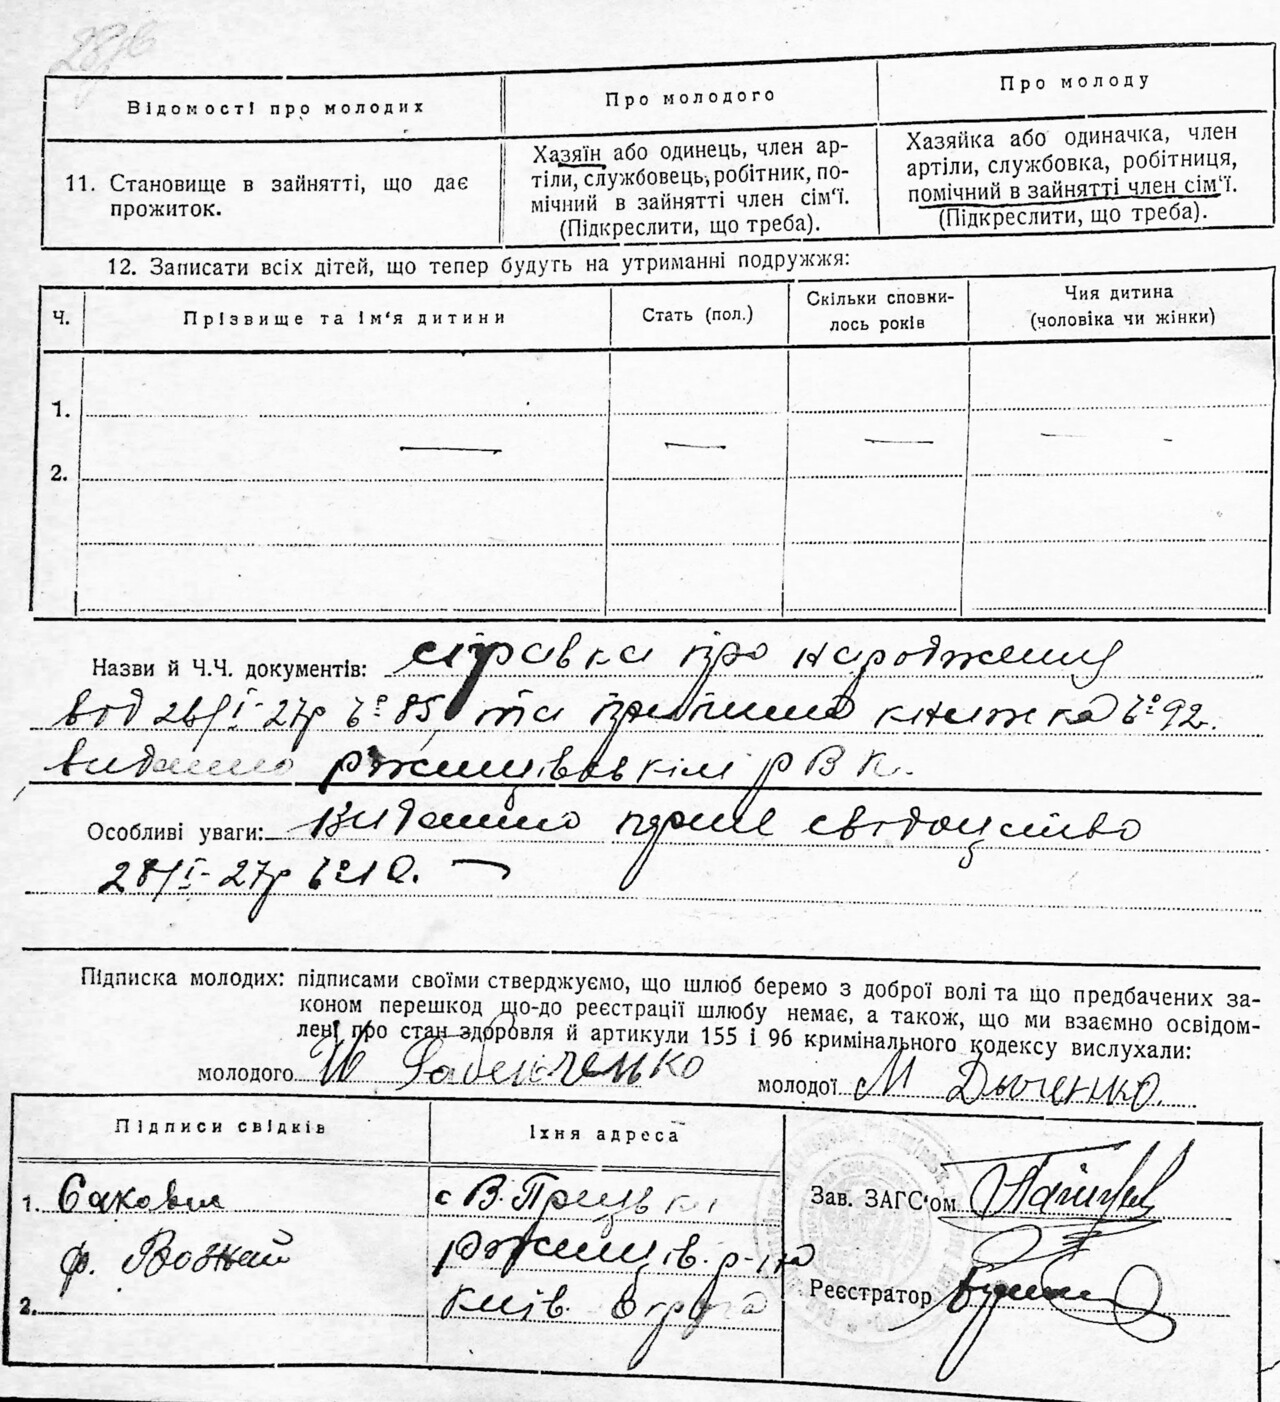 Відомості про молодих
Про молодого
Про молоду
11. Становище в зайнятті, що дає
прожиток.
Хазяїн або одинець, член ар-
тіли, службовець, робітник, по-
мічний в зайнятті член сім‘ї.
(Підкреслити, що треба).
Хазяйка або одиначка, член
артіли, службовка, робітниця,
помічний в зайнятті член сім‘ї.
(Підкреслити, що треба).
12. Записати всіх дітей, що тепер будуть на утриманні подружжя:
Ч.
Прізвище та ім‘я дитини
Стать (пол.)
Скільки сповни-
лось років
Чия дитина
(чоловіка чи жінки)
1.
2.
Назви й Ч.Ч. документів: справка про народження
від 28/I-27р № 85, та книжка № 92.
видано Ржищівським РВК.
Особливі уваги: Видано перше свідоцтво
28/I-27р № 10.
Підписка молодих: підписами своїми стверджуємо, що шлюб беремо з доброї волі та що предбачених за-
коном перешкод що-до реєстрації шлюбу немає, а також, що ми взаємно освідом-
лені про стан здоровля й артикули 155 і 96 кримінального кодексу вислухали:
молодого
молодої М Дяченко.
Підписи свідків
Їхня адреса
1.
с В. Прицьки
Зав. ЗАГС‘ом
ф.
Ржищів. р-на
2.
Київ. Округа
Реєстратор